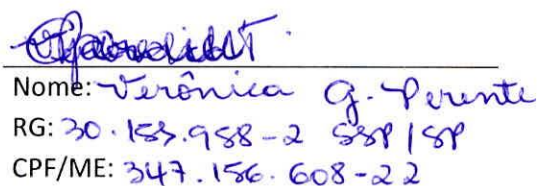 Nome: Verônica G. Perente
RG: 30.153.958-2 SSP/SP
CPF/ME: 347.156.608-22